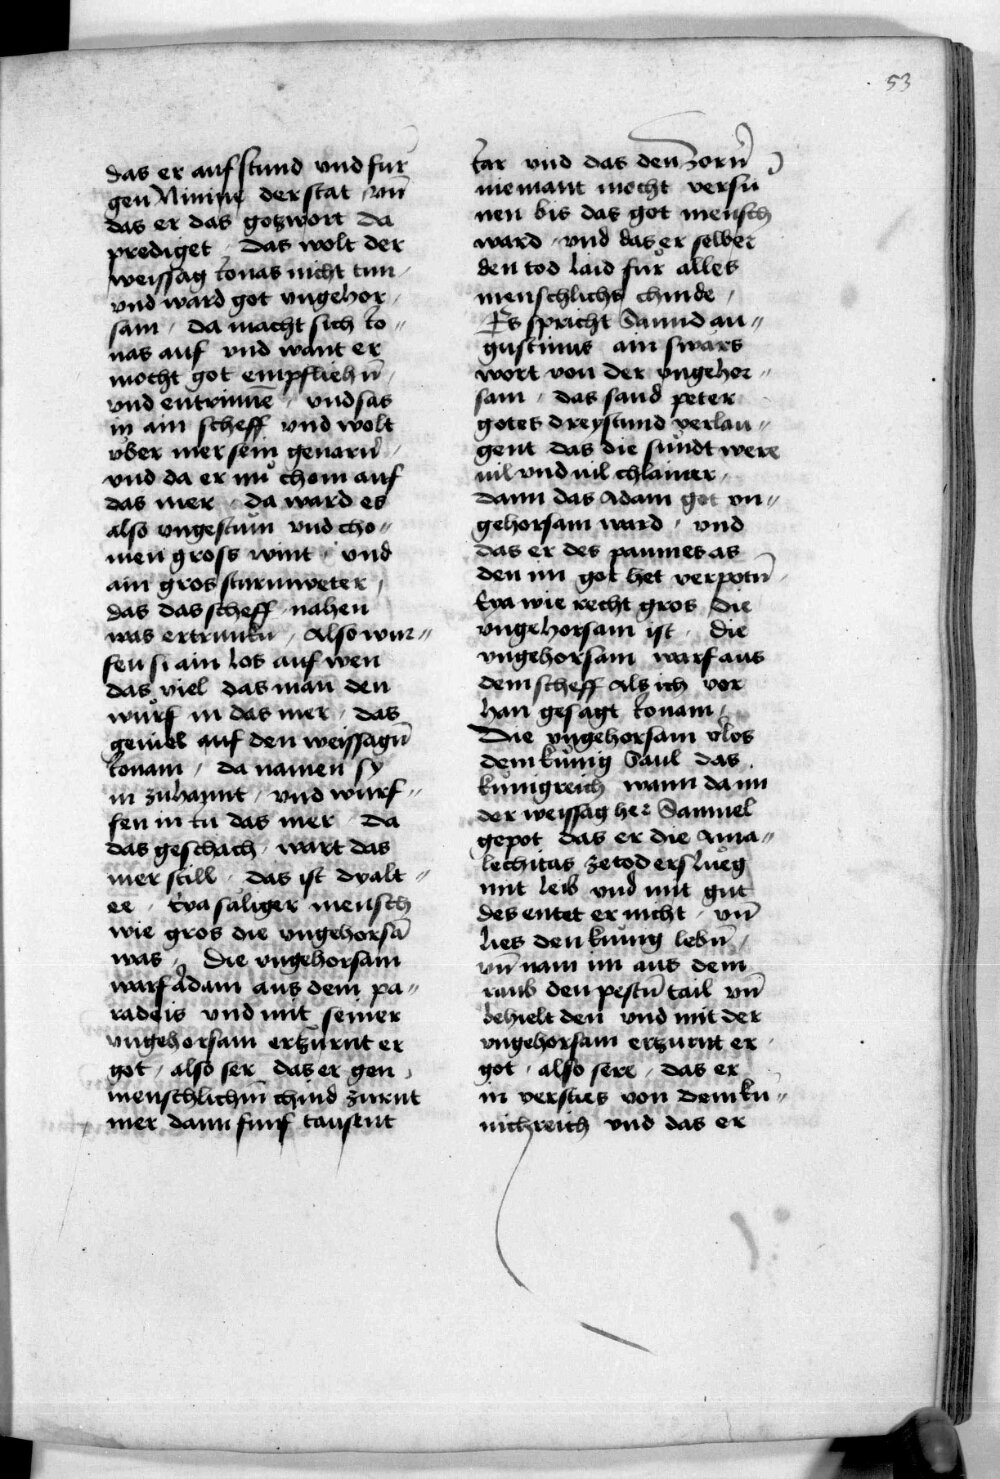 53
das er auf stund vnd fur
gen Niniue der stat vn̄
das er das gotzwort da
prediget das wolt der
weissag Ionas nicht tun
vnd ward got vngehor
sam da macht sich Io〃
nas auf vnd want er
mocht got empfliehn̄
vnd entrinnē vnd sas
in ain scheff vnd wolt
vber mer sein geuarn̄
vnd da er nu chom auf
das mer da ward es
also vngestum vnd cho〃
men gross wint vnd
ain gros sturmweter
das das scheff nahen
was ertrunkn̄ Also wur〃
fen si ain los auf wen
das viel das man den
wurf in das mer das
geuiel auf den weissagn̄
Ionam da namen sy
in zuhannt vnd wurf〃
fen in in das mer Da
das geschach wart das
mer still das ist dvalt〃
ee Eva säliger mensch
wie gros die vngehorsā
was Die vngehorsam
warf Adam aus dem pa〃
radeis vnd mit seiner
vngehorsam erzurnt er
got also ser das er gen
menschlichm̄ chind zurnt
mer dann funf tausent
Iar vnd das den zorn̄
niemant mocht versu
nen bis das got mensch
ward vnd das er selber
den tod laid fur alles
menschlichs chinde
Es spricht Sannd au〃
gustinus ain swars
wort von der vngehor〃
sam das sand peter
gotes dreystund verlau〃
gent das die sundt were
vil vnd vil chlainer
Dann das Adam got vn〃
gehorsam ward vnd
das er des paumes as
den im got het verpotn̄
Eva wie recht gros die
vngehorsam ist die
vngehorsam warf aus
dem scheff als ich vor
han gesagt Ionam
Die vngehorsam vlos
dem kunig Saul das
kunigreich wann da im
der weissag her Samuel
gepot das er die Ama〃
lechitas zetod erslueg
mit leib vnd mit gut
des entet er nicht vn̄
lies den kunig lebn̄
vn̄ nam im aus dem
raub den pestn̄ tail vn̄
behielt den vnd mit der
vngehorsam erzurnt er
got also sere das er
in versties von dem ku〃
nichreich vnd das er